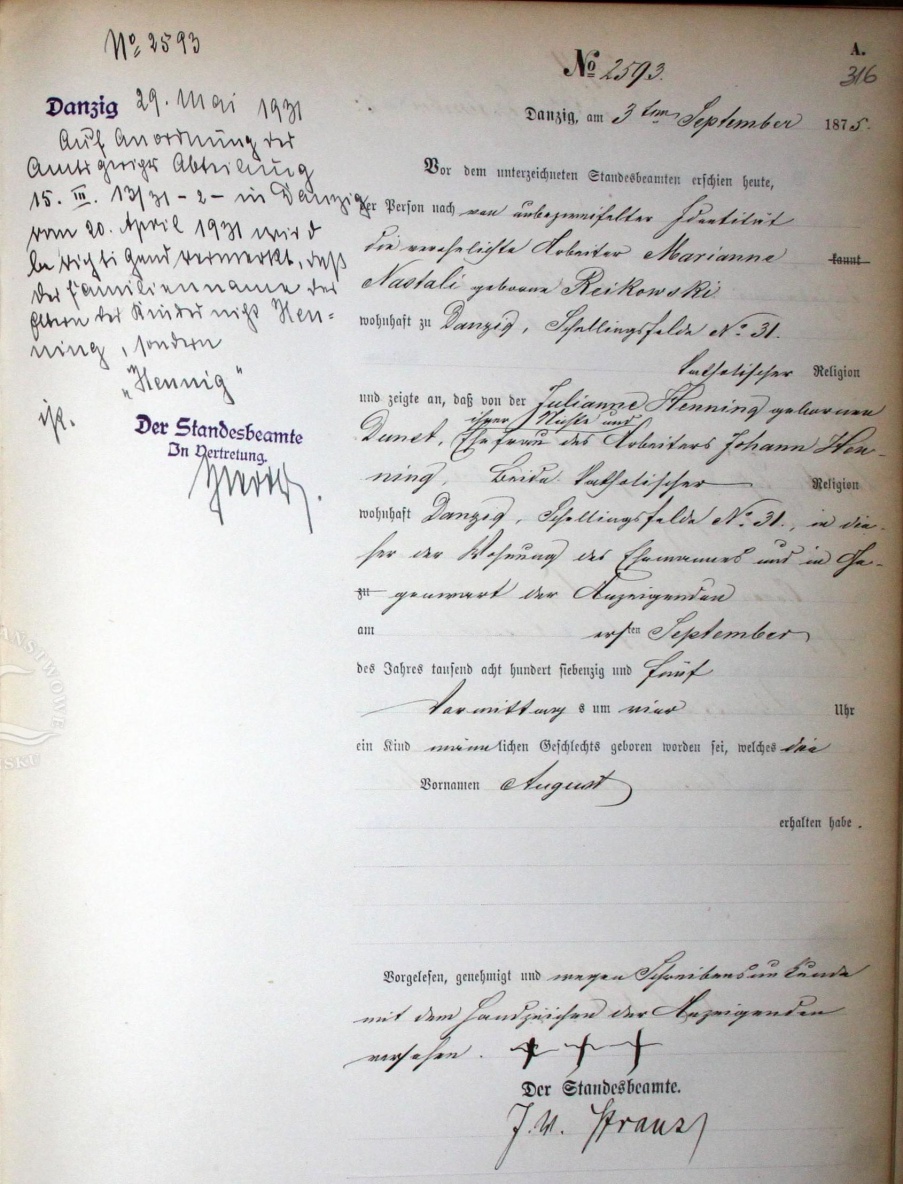 No 2593
Danzig 29. Mai 1931
Auf Anordnung des
Amtsgerichts Abteilung
15. III. 13/31 - 2 - in Danzig
vom 20. April 1931 wird
berichtigend vermerkt, daß
der Familienname der
Eltern des Kindes nicht Hen-
ning, sondern
"Hennig"
ist.
Der Standesbeamte
In Vertretung.
A.
316
No 2593.
Danzig, am 3ten September 1875.
Vor dem unterzeichneten Standesbeamten erschien heute,
der Person nach von unbezweifelter Identität
kannt
die verehelichte Arbeiter Marianne
Nastali geborne Reikowski
wohnhaft zu Danzig, Schellingsfelde No. 31.
katholischer Religion
und zeigte an, daß von der Julianne Henning gebornen
ihrer Nichte und
Dunst, Ehefrau des Arbeiters Johann Hen-
ning, beide katholischer Religion
wohnhaft Danzig, Schellingsfelde No. 31., in die-
ser der Wohnung des Ehemannes und in Ge-
zu genwart der Anzeigenden
am ersten September
des Jahres tausend acht hundert siebenzig und fünf
Vormittags um vier Uhr
ein Kind männlichen Geschlechts geboren worden sei, welches die
Vornamen August
erhalten habe.
Vorgelesen, genehmigt und wegen Schreibensunkunde
mit dem Handzeichen der Anzeigenden
versehen. + + +
Der Standesbeamte.
J. V. Strauß